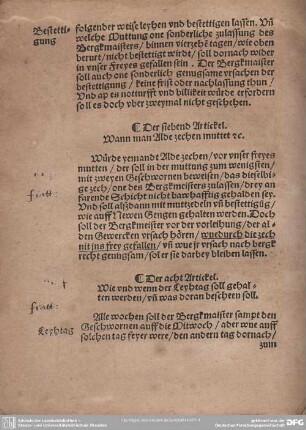 Bestetti-
gung
folgender weise leyhen vnd bestettigen lassen. Vñ
welche Muttung one sonderliche zulassung des
Bergkmaisters/ binnen vierzehē tagen/ wie oben
berurt/ nicht bestettigt wirdt/ soll domal wider
in vnser Freyes gefallen sein. Der Bergkmaister
soll auch one sonderlich genugsame vrsachen der
bestettigung/ keine frist oder nachlassung thun/
Vnd ap es notturfft vnd billikeit würde erfordern
soll es doch vber zweymal nicht geschehen.
⁋ Der siebend Artickel.
Wann man Alde zechen muttet ꝛc.
Würde yemandt Alde zechen/ vor vnser freyes
mutten/ der soll in der muttung zum wenigsten/
mit zweyen Geschwornen beweisen/ das dieselbi
ge zech/ one des Bergkmeisters zulassen/ drey an
farende Schicht nicht bawhafftig gehalden sey.
Vnd soll alsdann mit muttzedeln vñ bestettigūg/
wie auff Newen Gengen gehalten werden. Doch
soll der Bergkmeister vor der vorleihung/ der al-
den Gewercken vrsach hören/ wuedurch die zech
mit jns frey gefallen/ vñ wue jr vrsach nach bergk
recht genugsam/ sol er sie darbey bleiben lassen.
⁋ Der acht Artickel.
Wie vnd wenn der Leyhtag soll gehal-
ten werden/ vñ was doran beschehen soll.
Leyhtag
Alle wochen soll der Bergkmaister sampt den
Geschwornen auff die Mitwoch/ ader wue auff
solchen tag feyer were/ den andern tag dornach/
zum